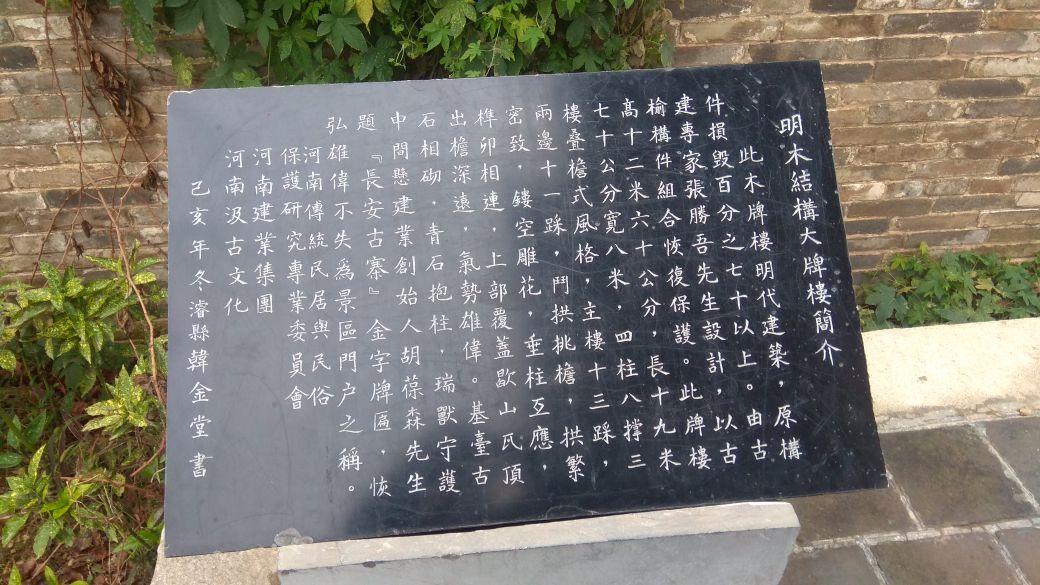 明木結構大牌樓簡介
此木牌樓明代建築，原構
件損毀百分之七十以上。由古
建專家張勝吾先生設計，以古
榆構件組合恢復保護。此牌樓
高十二米六十公分，長十九米
七十公分寬八米，四柱八撑三
樓叠檐式風格，主樓十三踩，
兩邊十一踩，鬥拱挑檐，拱繁
密致，鏤空雕花，垂柱互應，
榫卯相連，上部覆蓋歇山瓦頂
出檐深遠，氣勢雄偉。基臺古
石相砌，青石抱柱，瑞獸守護
中間懸建業創始人胡葆森先生
題『長安古寨』金字牌匾，恢
弘雄偉不失爲景區門户之稱。
河南傳統民居與民俗
保護研究專業委員會
河南建業集團
河南汲古文化
己亥年冬濬縣韓金堂書